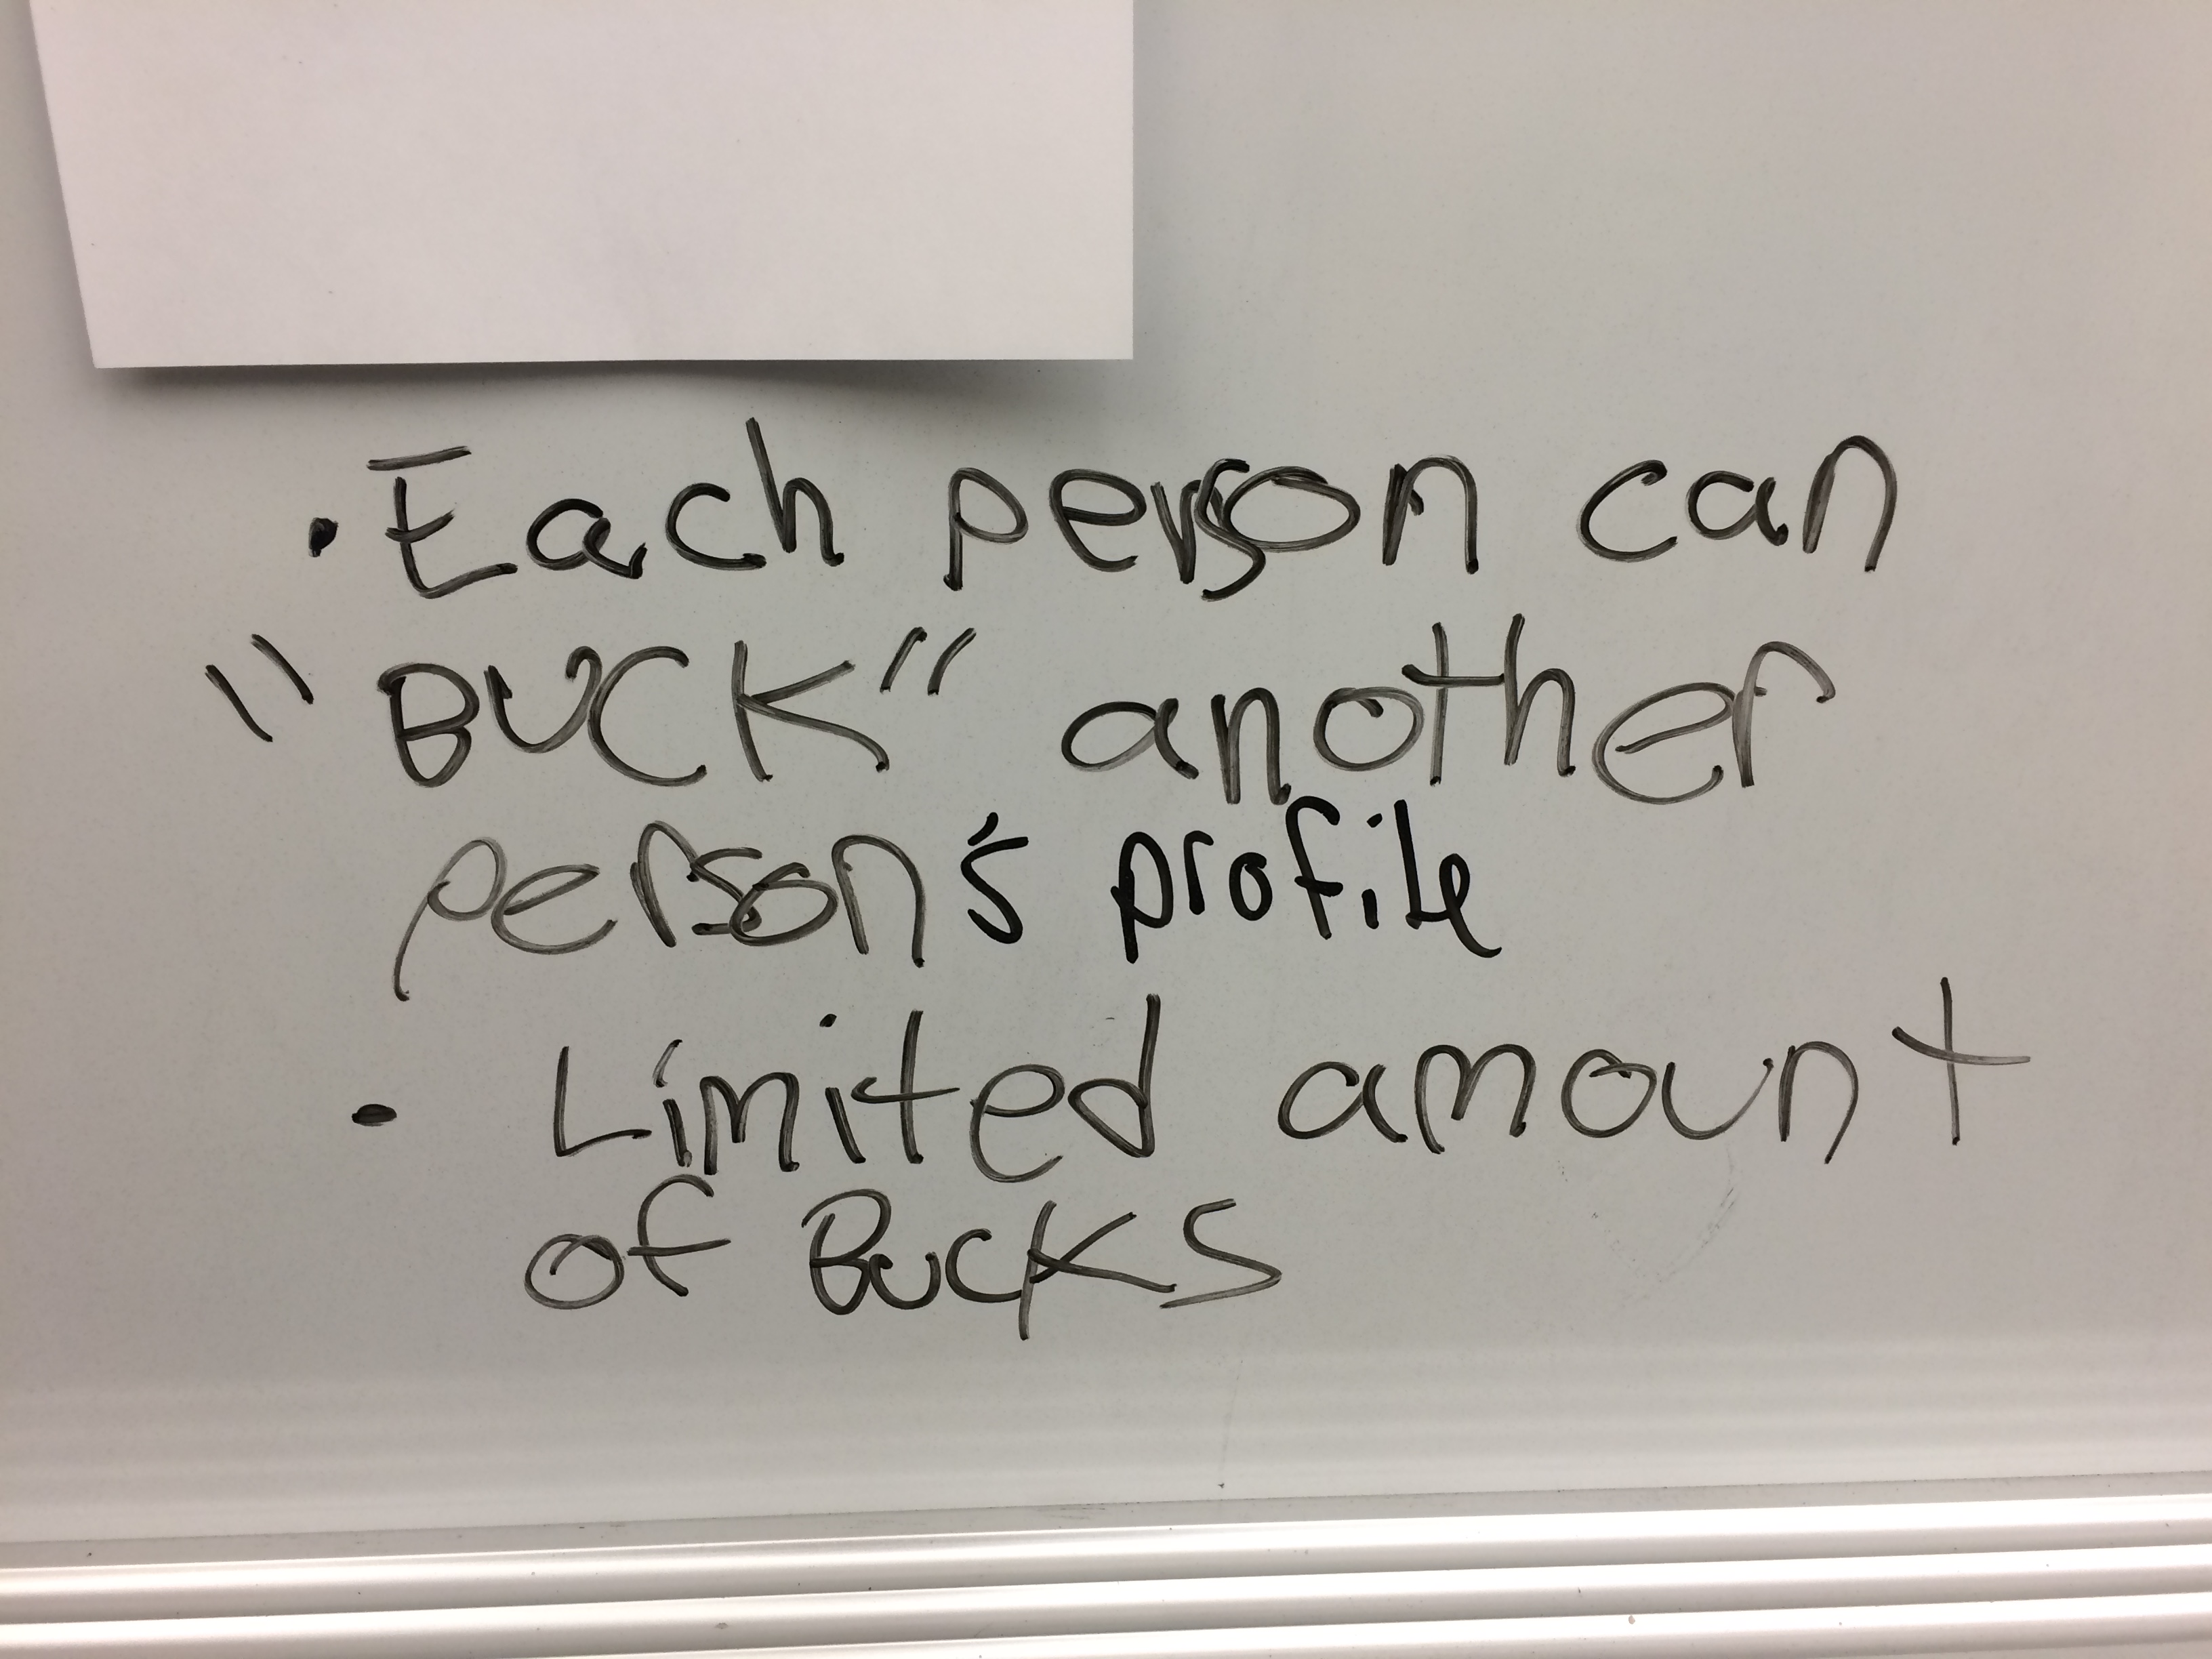 · Each person can
"BUCK" another
person's profile
· Limited amount
of Bucks